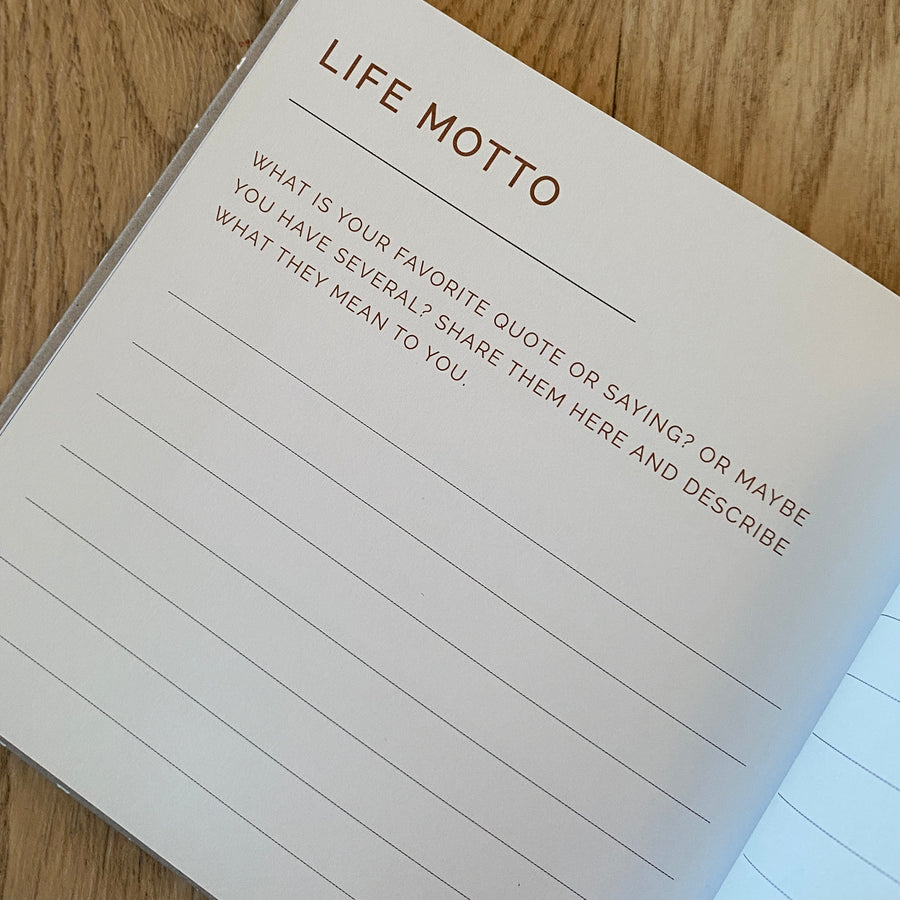 LIFE MOTTO
WHAT IS YOUR FAVORITE QUOTE OR SAYING? OR MAYBE
YOU HAVE SEVERAL? SHARE THEM HERE AND DESCRIBE
WHAT THEY MEAN TO YOU.